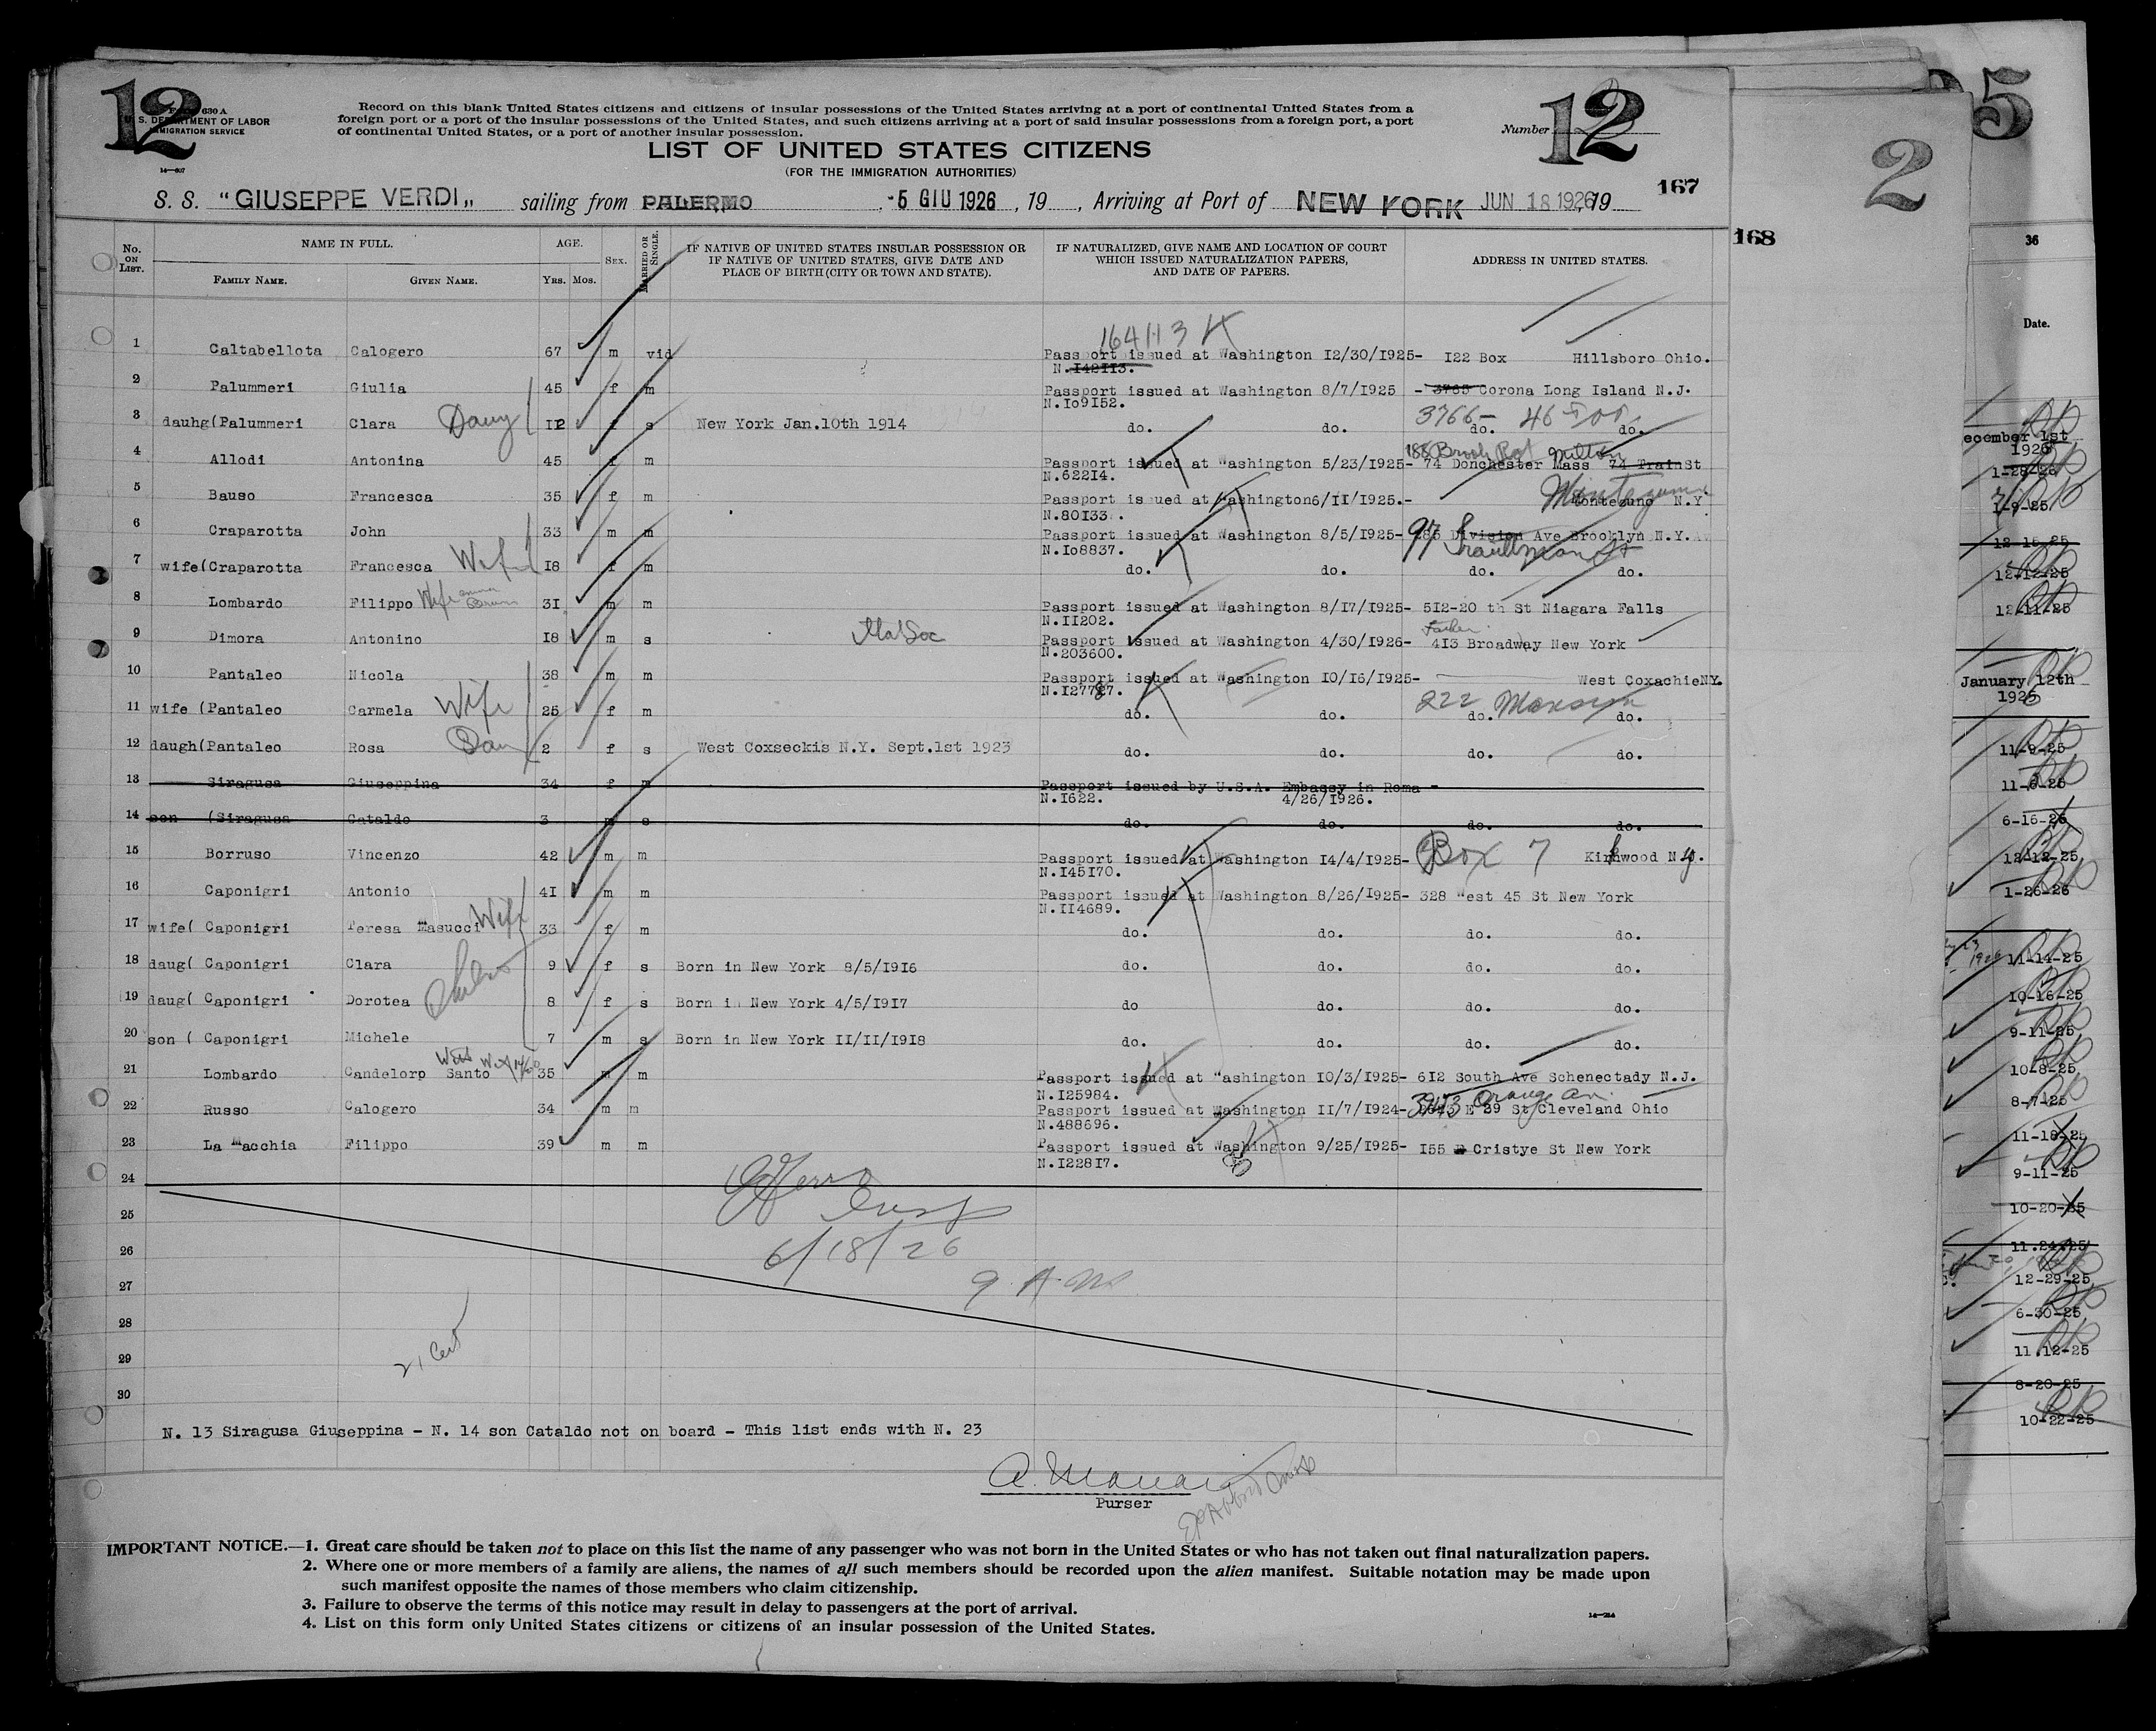 12
FORM 630 A
U. S. DEPARTMENT OF LABOR
IMMIGRATION SERVICE
Record on this blank United States citizens and citizens of insular possessions of the United States arriving at a port of continental United States from a
foreign port or a port of the insular possessions of the United States, and such citizens arriving at a port of said insular possessions from a foreign port, a port
of continental United States, or a port of another insular possession.
Number 12
LIST OF UNITED STATES CITIZENS
(FOR THE IMMIGRATION AUTHORITIES)
S. S. "GIUSEPPE VERDI„ sailing from PALERMO -5 GIU 1926, 19 , Arriving at Port of NEW YORK JUN 18 1926, 19
167
168
2
5
No. ON LIST. NAME IN FULL. FAMILY NAME. GIVEN NAME. AGE. YRS. MOS. SEX. MARRIED OR SINGLE. IF NATIVE OF UNITED STATES INSULAR POSSESSION OR IF NATIVE OF UNITED STATES, GIVE DATE AND PLACE OF BIRTH (CITY OR TOWN AND STATE). IF NATURALIZED, GIVE NAME AND LOCATION OF COURT WHICH ISSUED NATURALIZATION PAPERS, AND DATE OF PAPERS. ADDRESS IN UNITED STATES.
164113
1 Caltabellota Calogero 67 m vid Passport issued at Washington 12/30/1925- 122 Box Hillsboro Ohio.
N.142113.
2 Palummeri Giulia 45 f m Passport issued at Washington 8/7/1925 - 3765 Corona Long Island N.J.
N.109152.
3 dauhg(Palummeri Clara 12 f s New York Jan.10th 1914 do. do. do. do.
3766- 46
4 Allodi Antonina 45 f m Passport issued at Washington 5/23/1925- 74 Donchester Mass 74 Train St
N.62214.
188 Brook Milton
5 Bauso Francesca 35 f m Passport issued at Washington6/11/1925.- Montezuno N.Y
N.80133.
Montezuma
6 Craparotta John 33 m m Passport issued at Washington 8/5/1925- Division Ave Brooklyn N.Y.
N.108837.
97
7 wife(Craparotta Francesca Wife 18 f m do. do. do. do.
8 Lombardo Filippo Wife 31 m m Passport issued at Washington 8/17/1925- 512-20 th St Niagara Falls
N.11202.
9 Dimora Antonino 18 m s Passport issued at Washington 4/30/1926- 413 Broadway New York
N.203600.
Father
10 Pantaleo Nicola 38 m m Passport issued at Washington 10/16/1925- West CoxachieNY.
N.127787.
11 wife (Pantaleo Carmela Wife 25 f m do. do. do. do.
222
12 daugh(Pantaleo Rosa Dau 2 f s West Coxseckis N.Y. Sept.1st 1923 do. do. do. do.
13 Siragusa Giuseppina 34 f m Passport issued by U.S.A. Embassy in Roma -
N.1622. 4/26/1926.
14 son (Siragusa Cataldo 3 m s do. do. do. do.
15 Borruso Vincenzo 42 m m Passport issued at Washington 14/4/1925- Box 7 Kirkwood N.y.
N.145170.
16 Caponigri Antonio 41 m m Passport issued at Washington 8/26/1925- 328 West 45 St New York
N.114689.
17 wife( Caponigri Teresa Masucci Wife 33 f m do. do. do. do.
18 daug( Caponigri Clara 9 f s Born in New York 8/5/1916 do. do. do. do.
19 daug( Caponigri Dorotea 8 f s Born in New York 4/5/1917 do do. do. do.
20 son ( Caponigri Michele 7 m s Born in New York 11/11/1918 do. do. do. do.
21 Lombardo Candelorp Santo 35 m m Passport issued at Washington 10/3/1925- 612 South Ave Schenectady N.J.
N.125984.
22 Russo Calogero 34 m m Passport issued at Washington 11/7/1924- E 39 St Cleveland Ohio
N.488696.
Orange Av.
23 La Macchia Filippo 39 m m Passport issued at Washington 9/25/1925- 155 Cristye St New York
N.122817.
24
25
26
27
28
29
30
6/18/26
9 A.M.
21 Cert
N. 13 Siragusa Giuseppina - N. 14 son Cataldo not on board - This list ends with N. 23
Purser
IMPORTANT NOTICE.—1. Great care should be taken not to place on this list the name of any passenger who was not born in the United States or who has not taken out final naturalization papers.
2. Where one or more members of a family are aliens, the names of all such members should be recorded upon the alien manifest. Suitable notation may be made upon
such manifest opposite the names of those members who claim citizenship.
3. Failure to observe the terms of this notice may result in delay to passengers at the port of arrival.
4. List on this form only United States citizens or citizens of an insular possession of the United States.
36
Date.
ecember 1st
1925
1-28-26
1-9-25
12-15-25
12-12-25
12-11-25
January 12th
1926
11-9-25
11-6-25
6-15-25
12-12-25
1-26-26
11-14-25
10-16-25
9-11-25
10-8-25
8-7-25
11-18-25
9-11-25
10-20-25
11.24.25
12-29-25
6-30-25
11.12-25
8-20-25
10-22-25